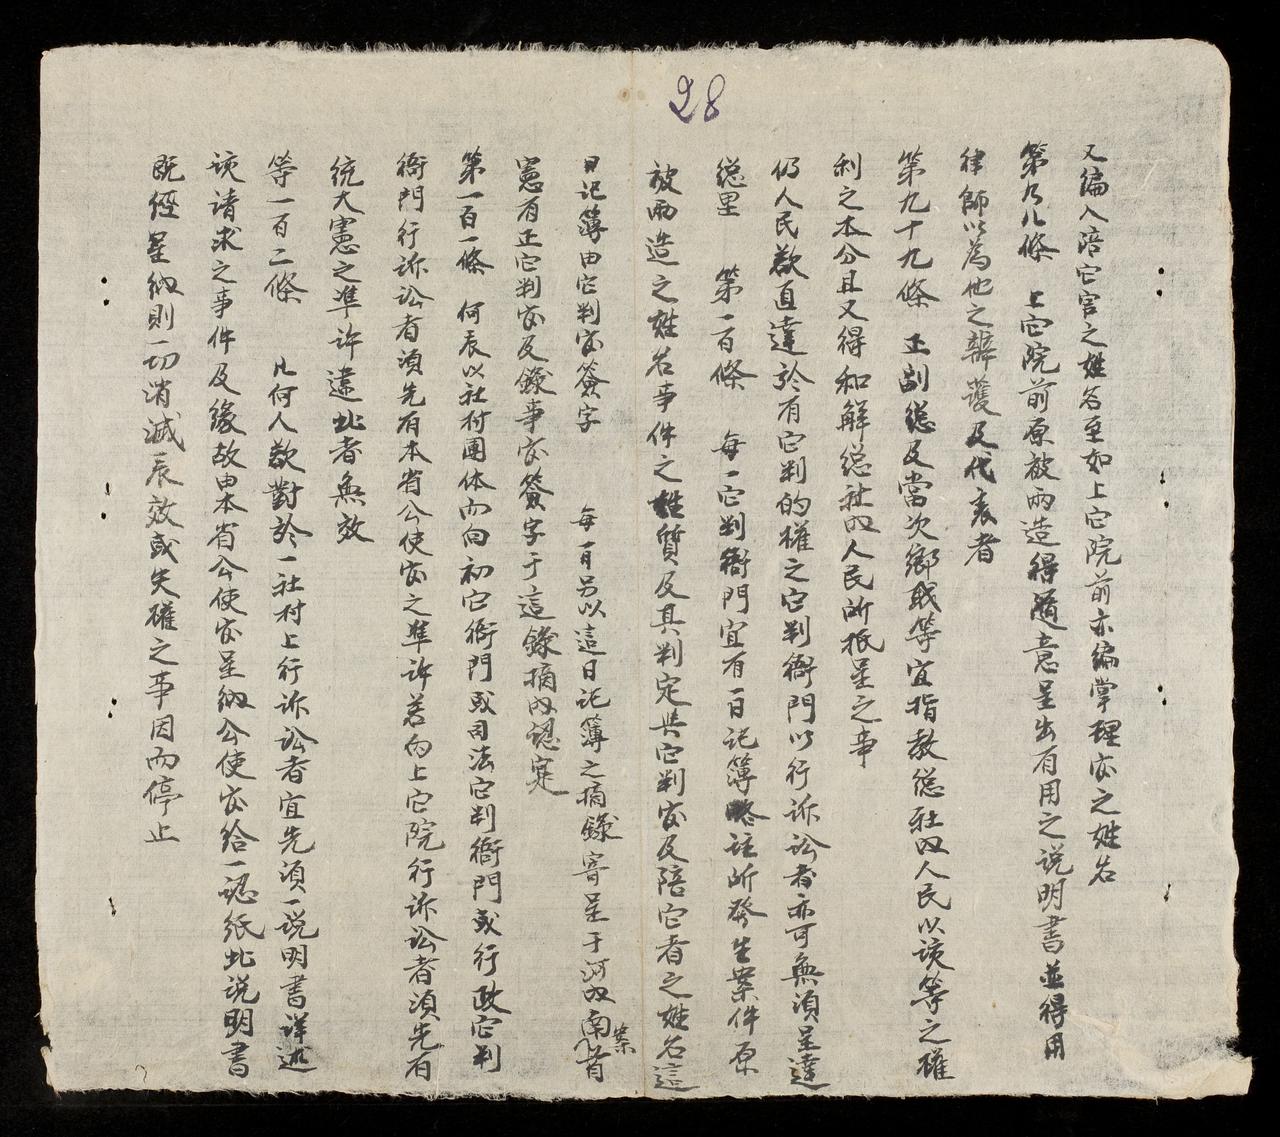 28
又編入陪它官之姓名至如上它院前亦編掌理官之姓名
第九八條 上它院前原被両造得隨意呈出有用之説明書並得用
律師以為他之辯護及代表者
第九十九條 正副總及當次鄉职等宜指教總社内人民以该等之權
利之本分且又得和解總社内人民所抵呈之事
仍人民歡直達於有它判的權之它判衙門以行訴訟者亦可無須呈達
總里 第一百條 每一它判衙門宜有一日記簿略註所發生案件原
被両造之姓名事件之性質及其判定與它判官及陪它者之姓名這
日記簿由它判官簽字 每一月另以這日記簿之摘錄寄呈于河内南案首
憲有正它判官及錄事官簽字于這錄摘内認寔
第一百一條 何辰以社村團体而向初它衙門或司法它判衙門或行政它判
衙門行訴訟者須先有本省公使官之準許若向上它院行訴訟者須先有
統大憲之準許違此者無效
等一百二條 凡何人歡對於一社村上行訴訟者宜先須一説明書详述
该请求之事件及缘故由本省公使官呈納公使官给一認紙此说明書
既經呈納則一切消滅辰效或失權之事因而停止